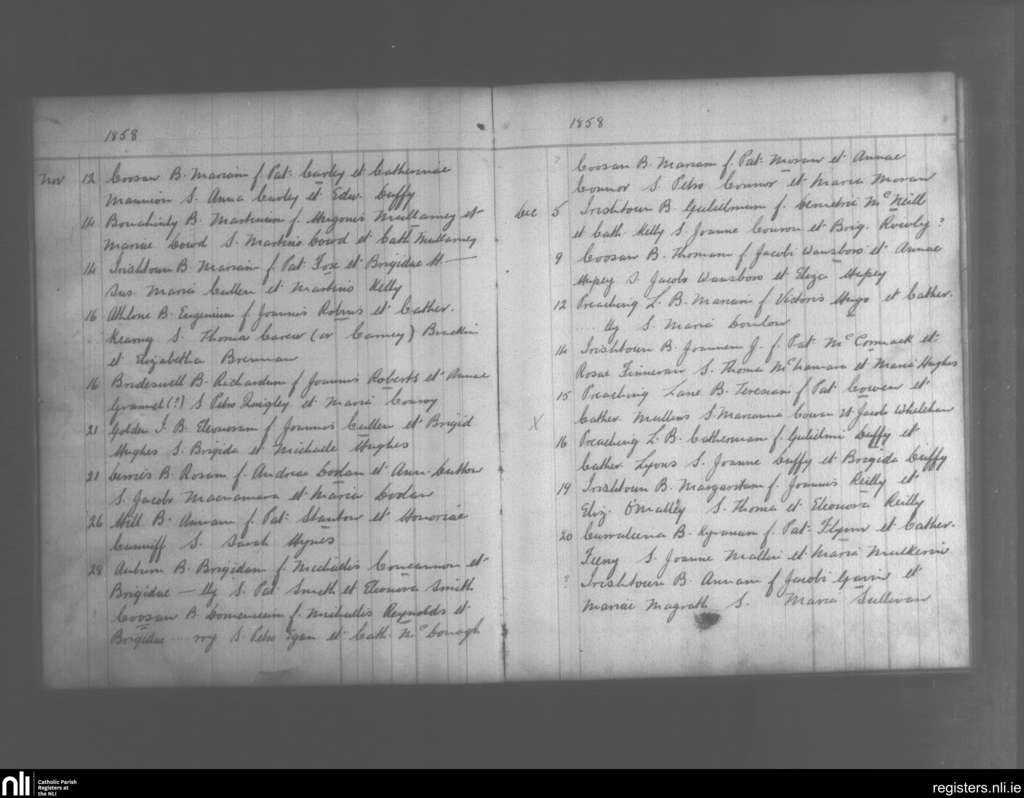 1858
Nov 12 Coosan B. Mariam f. Pat. Curley et Catherinae
Mannion S. Anna Curley et Edw. Duffy
14 B. Martinum f. Hugonis Mullarney et
Mariae Dowd S. Martino Dowd et Cath Mullarney
14 Irishtown B. Mariam f. Pat. Fox et Brigidae H—
Sus. Maria Cullen et Martino Kelly
16 Athlone B. Eugenium f. Joannis Robins et Cather.
Kearny S. Thoma Carew (or Carney) Bracken
et Elizabetha Brennan
16 Brideswell B. Richardum f. Joannis Roberts et Annae
(?) S. Petro Quigley et Maria Conroy
21 Golden I. B. Eleonoram f. Joannis Cullen et Brigid
Hughes S. Brigida et Michaele Hughes
21 B. Rosam f. Andreae Dolan et Ann.
S. Jacobo Macnamara et Maria Dolan
26 Hill B. Annam f. Pat. Stanton et Honoriae
Cunniff S. Sarah Hynes
28 Auburn B. Brigidam f. Michaelis Concannon et
Brigidae — ly S. Pat Smith et Eleonora Smith
Coosan B. f. Michaelis Reynolds et
Brigidae ... roy S. Petro Egan et Cath Mc Donagh
1858
? Coosan B. Mariam f. Pat. Moran et Annae
Connor S. Petro Connor et Maria Moran
Dec 5 Irishtown B. Gulielmum f. Demetrii Mc Neill
et Cath. Kelly S. Joanne et Brig. ?
9 Coosan B. Thomam f. Jacobi Wansboro et Annae
S. Jacobo Wansboro et Eliza
12 Preaching L. B. Mariam f. Victoris Hugo et Cather.
.... ly S. Maria Donlon
14 Irishtown B. Joannem J. f. Pat Mc Cormack et
Rosae Finneran S. Thoma McNamara et Maria Hughes
15 Preaching Lane B. Teresiam f. Pat Cowen et
Cather. Mullins S. Marianna Cowen et Jacob Whelehan
X 16 Preaching L. B. Catherinam f. Gulielmi Duffy et
Cather Lyons S. Joanne Duffy et Brigida Duffy
19 Irishtown B. Margaritam f. Joannis Reilly et
Eliz. O'Malley S. Thoma et Eleonora Reilly
20 B. Kyranum f. Pat. Flynn et Cather.
Feeny S. Joanne et Maria Mulkerin
? Irishtown B. Annam f. Jacobi Gavin et
Mariae Magrath S. Maria Sullivan
nli Catholic Parish
Registers at
the NLI
registers.nli.ie